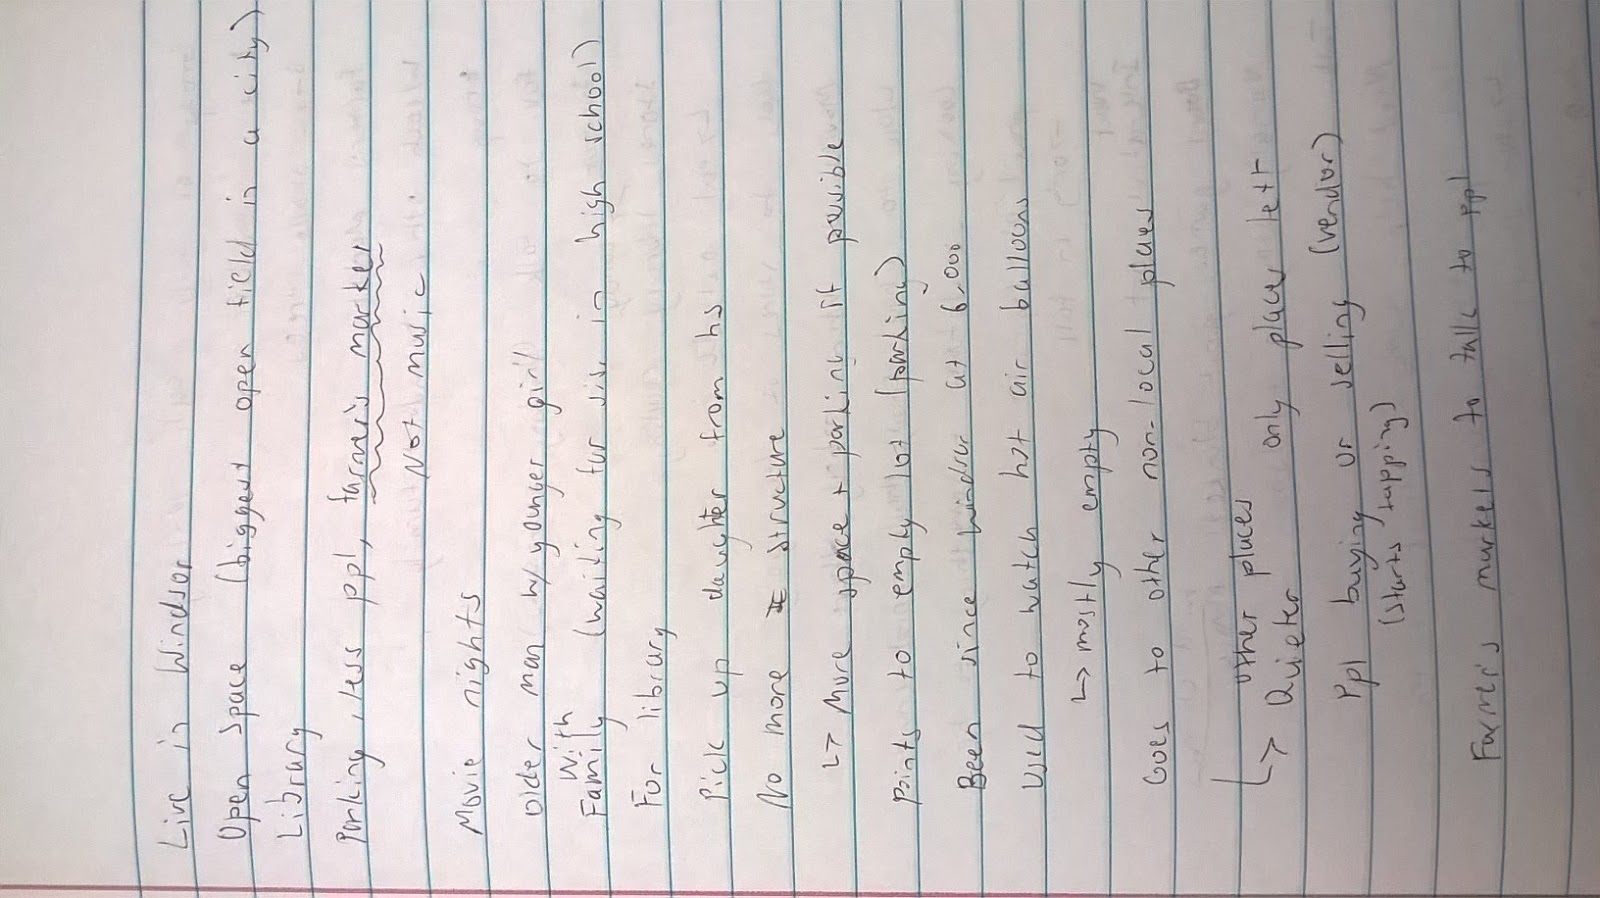 Live in Windsor
Open space (biggest open field in a city)
Library
Parking, less ppl, farmer's market
Not music
Movie nights
Older man w/ younger girl
With
Family (waiting for sis. in high school)
For library
Pick up daughter from hs
No more structure
↳ More space + parking if possible
Points to empty lot (parking)
Been since Windsor at 6,000
Used to watch hot air balloons
↳ mostly empty
Goes to other non-local places
↳ other places
Quieter only place left
Ppl buying or selling (vendor)
(starts tapping)
Farmer's markets to talk to ppl